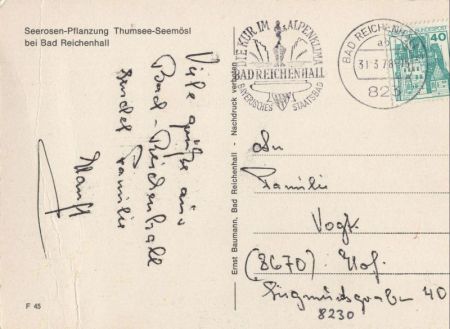 Seerosen-Pflanzung Thumsee-Seemösl
bei Bad Reichenhall
Viele Grüße aus
Bad-Reichenhall
sendet Familie
F 45
Ernst Baumann, Bad Reichenhall - Nachdruck verboten
DIE KUR IM ALPENKLIMA
BAD REICHENHALL
BAYERISCHES STAATSBAD
BAD REICHENHALL
31.3.78
823
40
An
Familie
Vogt
(8670) Hof.
Sigmundsgraben 40
8230